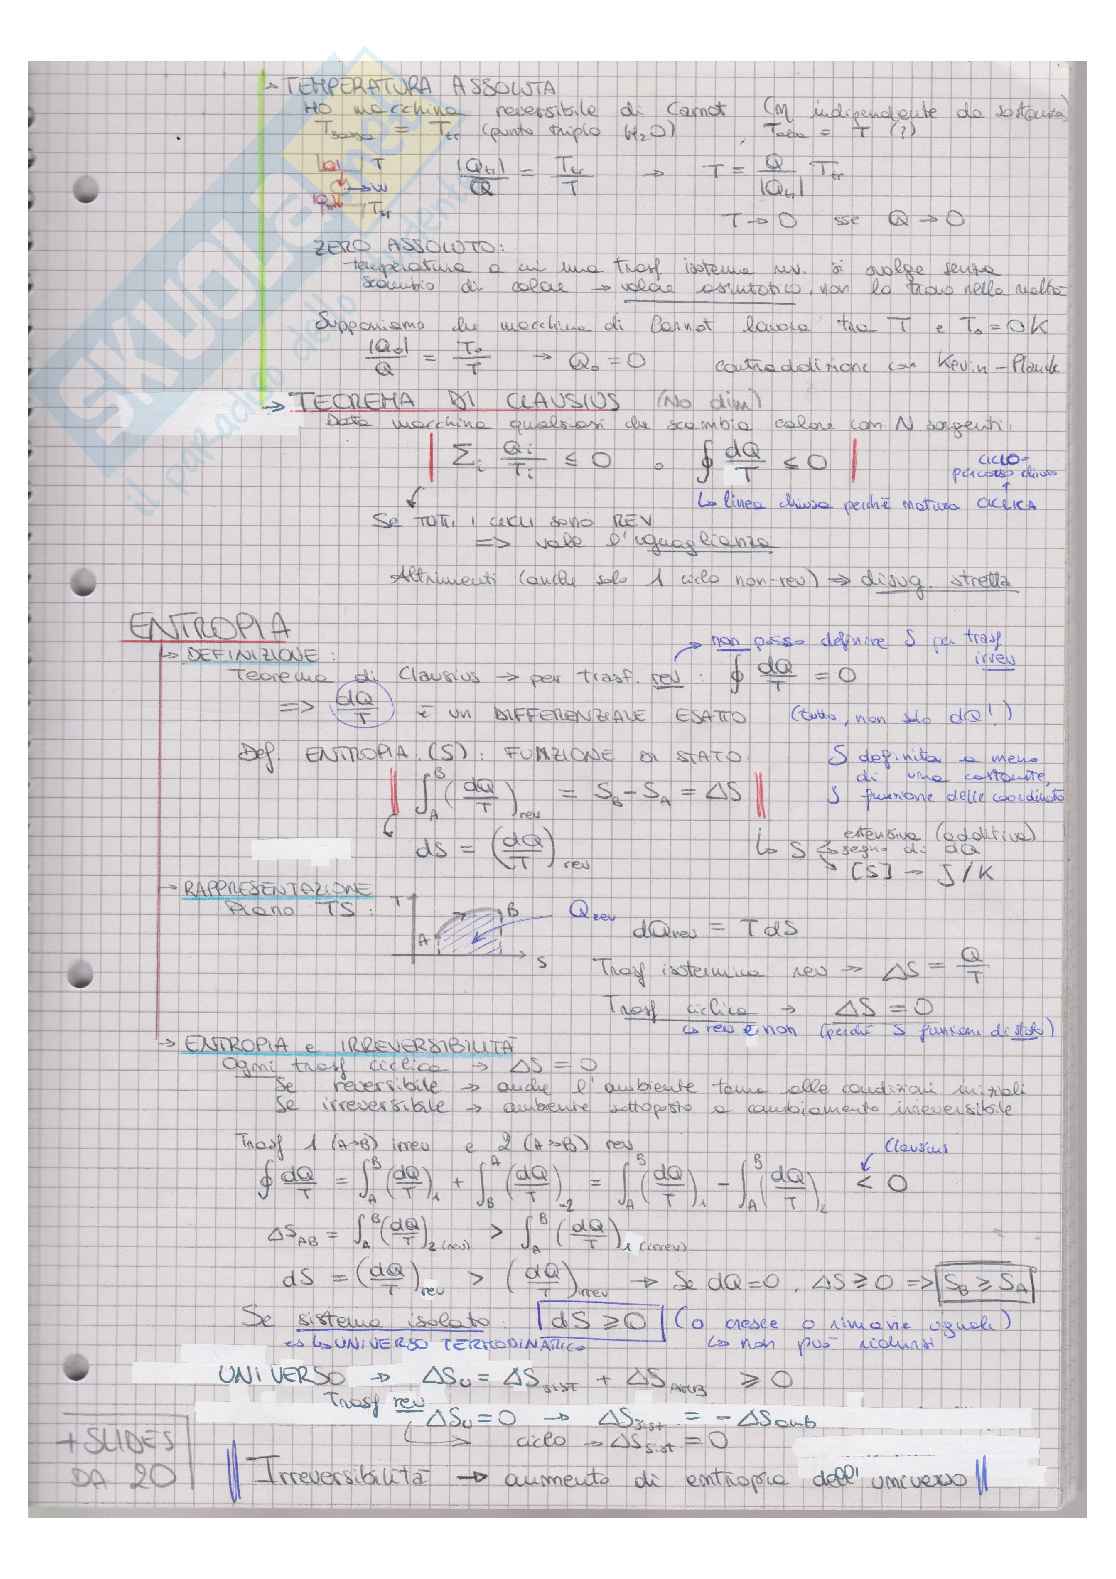 → TEMPERATURA ASSOLUTA
Ho macchina reversibile di Carnot (η indipendente da sostanza)
= Ttr (punto triplo H2O), = T (?)
T
|Qtr|/Q = Ttr/T → T = Q/|Qtr| Ttr
→ W
Ttr
T → 0 sse Q → 0
ZERO ASSOLUTO:
temperatura a cui una trasf isoterma rev. si svolge senza
scambio di calore → valore asintotico, non lo trovo nella realtà
Supponiamo che macchina di Carnot lavora tra T e T0 = 0K
|Q0|/Q = T0/T → Q0 = 0 contraddizione con Kelvin-Planck
→ TEOREMA DI CLAUSIUS (No dim)
Data macchina qualsiasi che scambia calore con N sorgenti:
Σi Qi/Ti ≤ 0 o ∮ dQ/T ≤ 0
CICLO-
percorso chiuso
↳ linea chiusa perché natura CICLICA
Se TUTTI I CICLI sono REV
=> vale l'uguaglianza
Altrimenti (anche solo 1 ciclo non-rev) → disug. stretta
ENTROPIA
↳ DEFINIZIONE:
→ non posso definire S per trasf irrev
Teorema di Clausius → per trasf. rev: ∮ dQ/T = 0
=> dQ/T è UN DIFFERENZIALE ESATTO (tutto, non solo dQ!)
Def. ENTROPIA (S): FUNZIONE DI STATO
S definita a meno
di una costante,
S funzione delle coordinate
∫AB (dQ/T)rev = SB - SA = ΔS
dS = (dQ/T)rev
↳ S estensiva (additiva)
segno di dQ
[S] - J/K
→ RAPPRESENTAZIONE
Piano TS:
T
A
B
S
Qrev
dQrev = TdS
Trasf isoterma rev → ΔS = Q/T
Trasf ciclica → ΔS = 0
↳ rev e non (perché S funzioni di stato)
→ ENTROPIA e IRREVERSIBILITÀ
Ogni trasf ciclica → ΔS = 0
Se reversibile → anche l'ambiente torna alle condizioni iniziali
Se irreversibile → ambiente sottoposto a cambiamento irreversibile
Trasf 1 (A→B) irrev e 2 (A→B) rev
Clausius
∮ dQ/T = ∫AB (dQ/T)1 + ∫BA (dQ/T)-2 = ∫AB (dQ/T)1 - ∫AB (dQ/T)2 < 0
ΔSAB = ∫AB (dQ/T)2 (rev) > ∫AB (dQ/T)1 (irrev)
dS = (dQ/T)rev > (dQ/T)irrev → Se dQ=0, ΔS ≥ 0 => SB ≥ SA
Se sistema isolato: dS ≥ 0 (o cresce o rimane uguale)
↳ UNIVERSO TERMODINAMICO
↳ non può ridursi
UNIVERSO → ΔSU = ΔSSIST + ΔSAMB ≥ 0
Trasf rev
ΔSU = 0 → ΔSsist = -ΔSamb
→ ciclo → ΔSsist = 0
+ SLIDES
DA 20
Irreversibilità → aumento di entropia dell'universo
SKUOLA.net
il paradiso dello studente